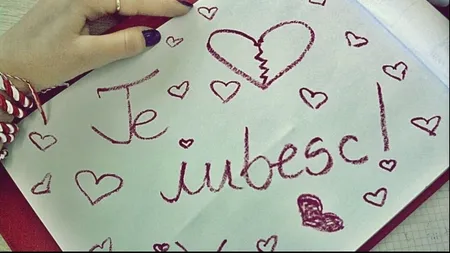 Te
iubesc!